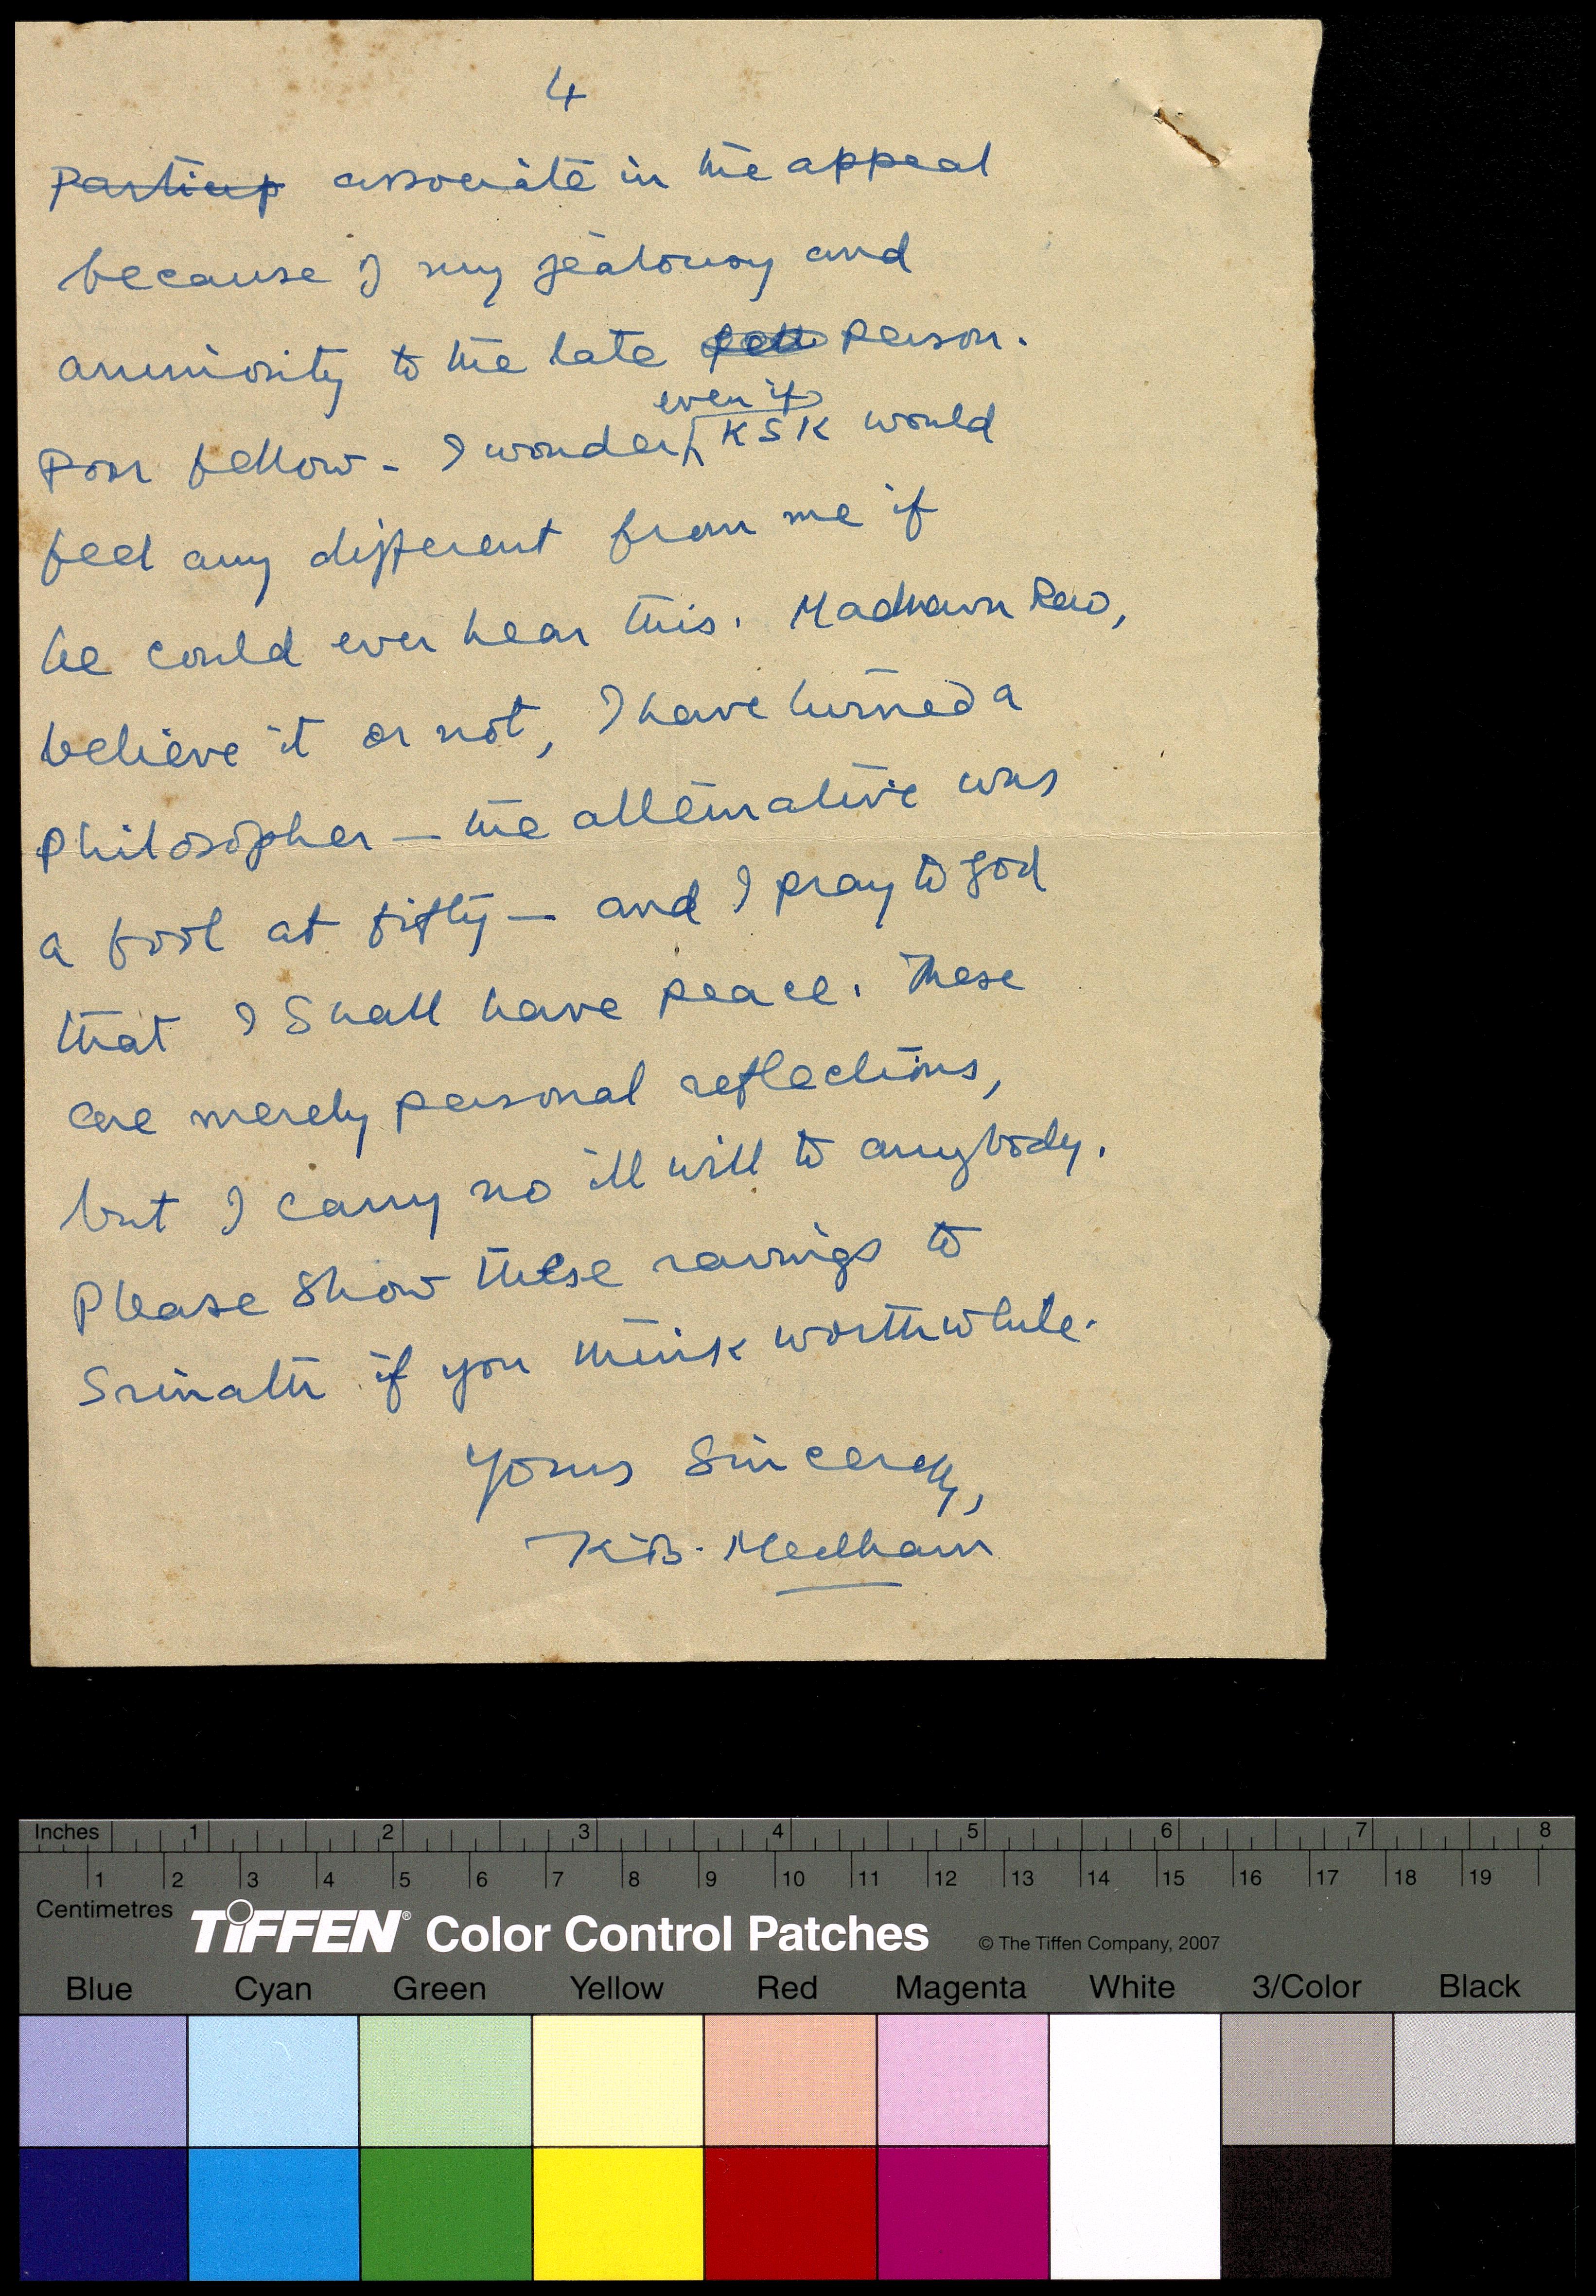 4
Particip associate in the appeal
because I my jealousy and
animiosity to the late person.
even if
Poor fellow - I wonder KSK would
feel any different from me if
he could ever hear this. Madhava Rao,
believe it or not, I have turned a
Philosopher — the alternative was
a fool at fifty — and I pray to God
that I shall have peace. These
are merely personal reflections,
but I carry no ill will to anybody.
Please show these ravings to
Srinath if you think worthwhile.
Yours Sincerely,
K.B.
Inches 1 2 3 4 5 6 7 8
1 2 3 4 5 6 7 8 9 10 11 12 13 14 15 16 17 18 19
Centimetres
TIFFEN® Color Control Patches © The Tiffen Company, 2007
Blue Cyan Green Yellow Red Magenta White 3/Color Black